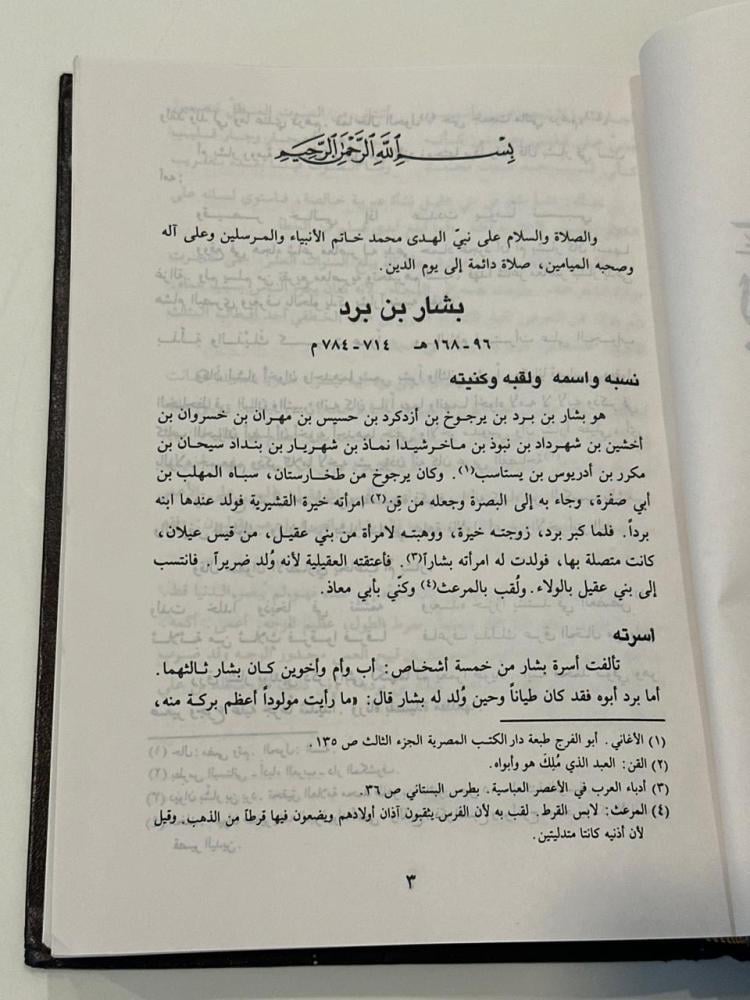 بِسْمِ ٱللَّهِ ٱلرَّحْمَٰنِ ٱلرَّحِيمِ
والصلاة والسلام على نبيّ الهدى محمد خاتم الأنبياء والمرسلين وعلى آله
وصحبه الميامين، صلاة دائمة إلى يوم الدين.
بشار بن برد
٩٦ - ١٦٨ هـ ٧١٤ - ٧٨٤ م
نسبه واسمه ولقبه وكنيته
هو بشار بن برد بن يرجوخ بن أزدكرد بن حسيس بن مهران بن خسروان بن
أخشين بن شهرداد بن نبوذ بن ماخرشيدا نماذ بن شهريار بن بنداد سيحان بن
مكرر بن أدريوس بن يستاسب(١). وكان يرجوخ من طخارستان، سباه المهلب بن
أبي صفرة، وجاء به إلى البصرة وجعله من قِن(٢) امرأته خيرة القشيرية فولد عندها ابنه
برداً. فلما كبر برد، زوجته خيرة، ووهبته لامرأة من بني عقيل، من قيس عيلان،
كانت متصلة بها، فولدت له امرأته بشاراً(٣). فأعتقته العقيلية لأنه وُلد ضريراً. فانتسب
إلى بني عقيل بالولاء. ولُقب بالمرعث(٤) وكنّي بأبي معاذ.
أسرته
تألفت أسرة بشار من خمسة أشخاص: أب وأم وأخوين كان بشار ثالثهما.
أما برد أبوه فقد كان طياناً وحين وُلد له بشار قال: «ما رأيت مولوداً أعظم بركة منه،
(١) الأغاني. أبو الفرج طبعة دار الكتب المصرية الجزء الثالث ص ١٣٥.
(٢) القن: العبد الذي مُلِكَ هو وأبواه.
(٣) أدباء العرب في الأعصر العباسية. بطرس البستاني ص ٣٦.
(٤) المرعث: لابس القرط. لقب به لأن الفرس يثقبون آذان أولادهم ويضعون فيها قرطاً من الذهب. وقيل
لأن أذنيه كانتا متدليتين.
٣